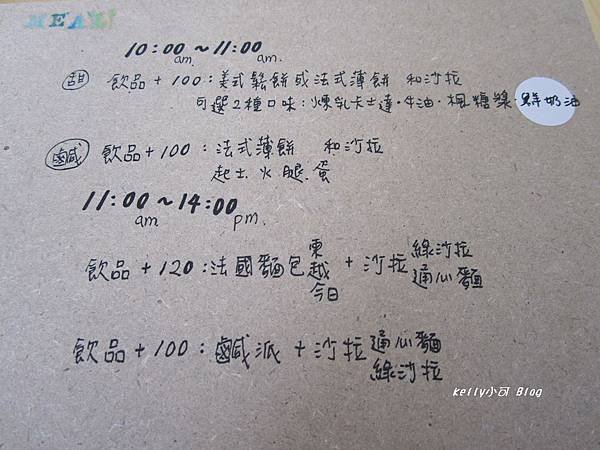 MEAL!
10:00 ~ 11:00
am. am.
甜 飲品 + 100 : 美式鬆餅或法式薄餅 和沙拉
可選2種口味 : 煉乳卡士達・牛油・楓糖漿・鮮奶油
鹹 飲品 + 100 : 法式薄餅 和沙拉
起士.火腿.蛋
11:00 ~ 14:00
am pm.
飲品 + 120 : 法國麵包 東越今日 + 沙拉 綠沙拉 通心麵
飲品 + 100 : 鹹派 + 沙拉 通心麵 綠沙拉
kelly小可 Blog